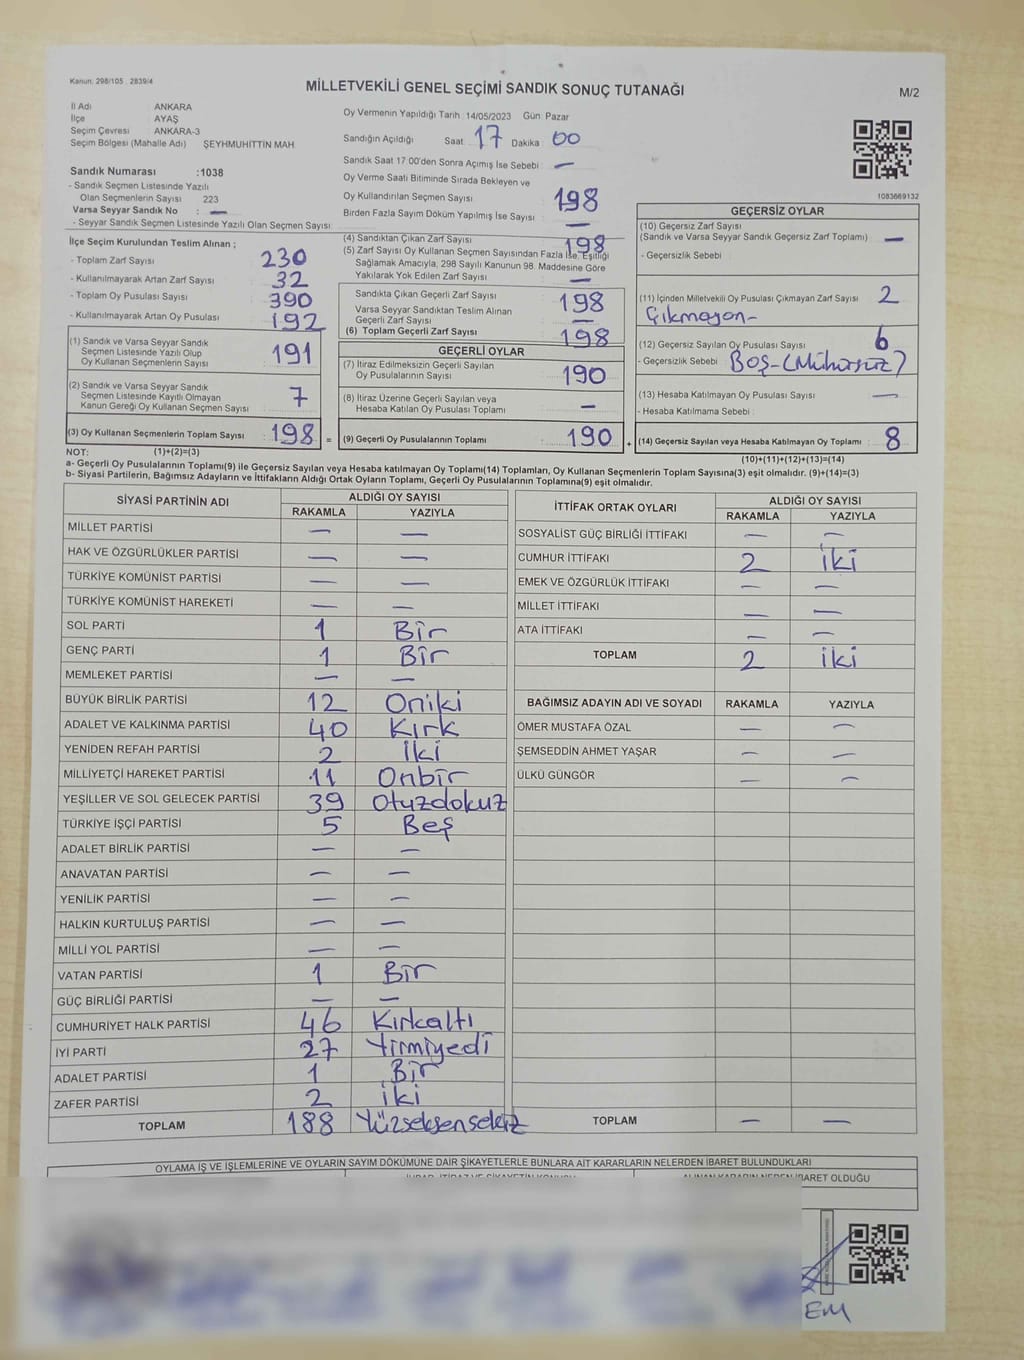 Kanun: 298/105 , 2839/4
MİLLETVEKİLİ GENEL SEÇİMİ SANDIK SONUÇ TUTANAĞI
M/2
İl Adı ANKARA
İlçe AYAŞ
Seçim Çevresi ANKARA-3
Seçim Bölgesi (Mahalle Adı) ŞEYHMUHİTTİN MAH.
Sandık Numarası :1038
- Sandık Seçmen Listesinde Yazılı
Olan Seçmenlerin Sayısı 223
Varsa Seyyar Sandık No : —
- Seyyar Sandık Seçmen Listesinde Yazılı Olan Seçmen Sayısı:
Oy Vermenin Yapıldığı Tarih: 14/05/2023 Gün: Pazar
Sandığın Açıldığı Saat: 17 Dakika: 00
Sandık Saat 17:00'den Sonra Açımış İse Sebebi : —
Oy Verme Saati Bitiminde Sırada Bekleyen ve
Oy Kullandırılan Seçmen Sayısı 198
Birden Fazla Sayım Döküm Yapılmış İse Sayısı : —
1083669132
İlçe Seçim Kurulundan Teslim Alınan ;
- Toplam Zarf Sayısı 230
- Kullanılmayarak Artan Zarf Sayısı : 32
- Toplam Oy Pusulası Sayısı 390
- Kullanılmayarak Artan Oy Pusulası 192
(1) Sandık ve Varsa Seyyar Sandık
Seçmen Listesinde Yazılı Olup
Oy Kullanan Seçmenlerin Sayısı 191
(2) Sandık ve Varsa Seyyar Sandık
Seçmen Listesinde Kayıtlı Olmayan
Kanun Gereği Oy Kullanan Seçmen Sayısı 7
(3) Oy Kullanan Seçmenlerin Toplam Sayısı : 198 =
(4) Sandıktan Çıkan Zarf Sayısı 198
(5) Zarf Sayısı Oy Kullanan Seçmen Sayısından Fazla İse, Eşitliği
Sağlamak Amacıyla, 298 Sayılı Kanunun 98. Maddesine Göre
Yakılarak Yok Edilen Zarf Sayısı —
Sandıkta Çıkan Geçerli Zarf Sayısı 198
Varsa Seyyar Sandıktan Teslim Alınan
Geçerli Zarf Sayısı —
(6) Toplam Geçerli Zarf Sayısı 198
GEÇERLİ OYLAR
(7) İtiraz Edilmeksizin Geçerli Sayılan
Oy Pusulalarının Sayısı 190
(8) İtiraz Üzerine Geçerli Sayılan veya
Hesaba Katılan Oy Pusulası Toplamı —
(9) Geçerli Oy Pusulalarının Toplamı 190 +
GEÇERSİZ OYLAR
(10) Geçersiz Zarf Sayısı
(Sandık ve Varsa Seyyar Sandık Geçersiz Zarf Toplamı) —
- Geçersizlik Sebebi :
(11) İçinden Milletvekili Oy Pusulası Çıkmayan Zarf Sayısı 2
Çıkmayan-
(12) Geçersiz Sayılan Oy Pusulası Sayısı 6
- Geçersizlik Sebebi Boş-(Mühürsüz)
(13) Hesaba Katılmayan Oy Pusulası Sayısı —
- Hesaba Katılmama Sebebi :
(14) Geçersiz Sayılan veya Hesaba Katılmayan Oy Toplamı : 8
NOT: (1)+(2)=(3) (10)+(11)+(12)+(13)=(14)
a- Geçerli Oy Pusulalarının Toplamı(9) ile Geçersiz Sayılan veya Hesaba katılmayan Oy Toplamı(14) Toplamları, Oy Kullanan Seçmenlerin Toplam Sayısına(3) eşit olmalıdır. (9)+(14)=(3)
b- Siyasi Partilerin, Bağımsız Adayların ve İttifakların Aldığı Ortak Oyların Toplamı, Geçerli Oy Pusulalarının Toplamına(9) eşit olmalıdır.
SİYASİ PARTİNİN ADI ALDIĞI OY SAYISI
RAKAMLA YAZIYLA
MİLLET PARTİSİ — —
HAK VE ÖZGÜRLÜKLER PARTİSİ — —
TÜRKİYE KOMÜNİST PARTİSİ — —
TÜRKİYE KOMÜNİST HAREKETİ — —
SOL PARTİ 1 Bir
GENÇ PARTİ 1 Bir
MEMLEKET PARTİSİ — —
BÜYÜK BİRLİK PARTİSİ 12 Oniki
ADALET VE KALKINMA PARTİSİ 40 Kırk
YENİDEN REFAH PARTİSİ 2 iki
MİLLİYETÇİ HAREKET PARTİSİ 11 Onbir
YEŞİLLER VE SOL GELECEK PARTİSİ 39 Otuzdokuz
TÜRKİYE İŞÇİ PARTİSİ 5 Beş
ADALET BİRLİK PARTİSİ — —
ANAVATAN PARTİSİ — —
YENİLİK PARTİSİ — —
HALKIN KURTULUŞ PARTİSİ — —
MİLLİ YOL PARTİSİ — —
VATAN PARTİSİ 1 Bir
GÜÇ BİRLİĞİ PARTİSİ — —
CUMHURİYET HALK PARTİSİ 46 Kırkaltı
İYİ PARTİ 27 Yirmiyedi
ADALET PARTİSİ 1 Bir
ZAFER PARTİSİ 2 iki
TOPLAM 188 Yüzseksensekiz
İTTİFAK ORTAK OYLARI ALDIĞI OY SAYISI
RAKAMLA YAZIYLA
SOSYALİST GÜÇ BİRLİĞİ İTTİFAKI — —
CUMHUR İTTİFAKI 2 iki
EMEK VE ÖZGÜRLÜK İTTİFAKI — —
MİLLET İTTİFAKI — —
ATA İTTİFAKI — —
TOPLAM 2 iki
BAĞIMSIZ ADAYIN ADI VE SOYADI RAKAMLA YAZIYLA
ÖMER MUSTAFA ÖZAL — —
ŞEMSEDDİN AHMET YAŞAR — —
ÜLKÜ GÜNGÖR — —
TOPLAM — —
OYLAMA İŞ VE İŞLEMLERİNE VE OYLARIN SAYIM DÖKÜMÜNE DAİR ŞİKAYETLERLE BUNLARA AİT KARARLARIN NELERDEN İBARET BULUNDUKLARI
İBARET OLDUĞU
EM